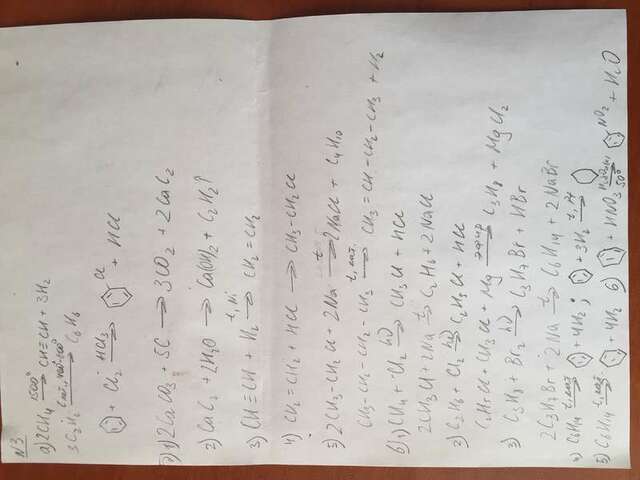 N3
а) 2CH₄ —1500°→ CH≡CH + 3H₂
3C₂H₂ —C кат., 400°-600°→ C₆H₆
+ Cl₂ → Cl + HCl
1) 2CaCO₃ + 5C → 3CO₂ + 2CaC₂
2) CaC₂ + 2H₂O → Ca(OH)₂ + C₂H₂↑
3) CH≡CH + H₂ —t, Ni→ CH₂=CH₂
4) CH₂=CH₂ + HCl → CH₃-CH₂Cl
5) 2CH₃-CH₂Cl + 2Na —t→ 2NaCl + C₄H₁₀
CH₃-CH₂-CH₂-CH₂-CH₃ —t, кат.→ CH₃=CH-CH₂-CH₃ + H₂
б) 1) CH₄ + Cl₂ —hν→ CH₃Cl + HCl
2CH₃Cl + 2Na —t→ C₂H₆ + 2NaCl
2) C₂H₆ + Cl₂ —hν→ C₂H₅Cl + HCl
C₂H₅Cl + CH₃Cl + Mg —эфир→ C₃H₈ + MgCl₂
3) C₃H₈ + Br₂ —hν→ C₃H₇Br + HBr
2C₃H₇Br + 2Na —t→ C₆H₁₄ + 2NaBr
4) C₆H₁₄ —t, кат.→ + 4H₂ ; + 3H₂ —t, Pt→
5) C₆H₁₄ —t, кат.→ + 4H₂ 6) + HNO₃ —H₂SO₄(к) 50°→ NO₂ + H₂O